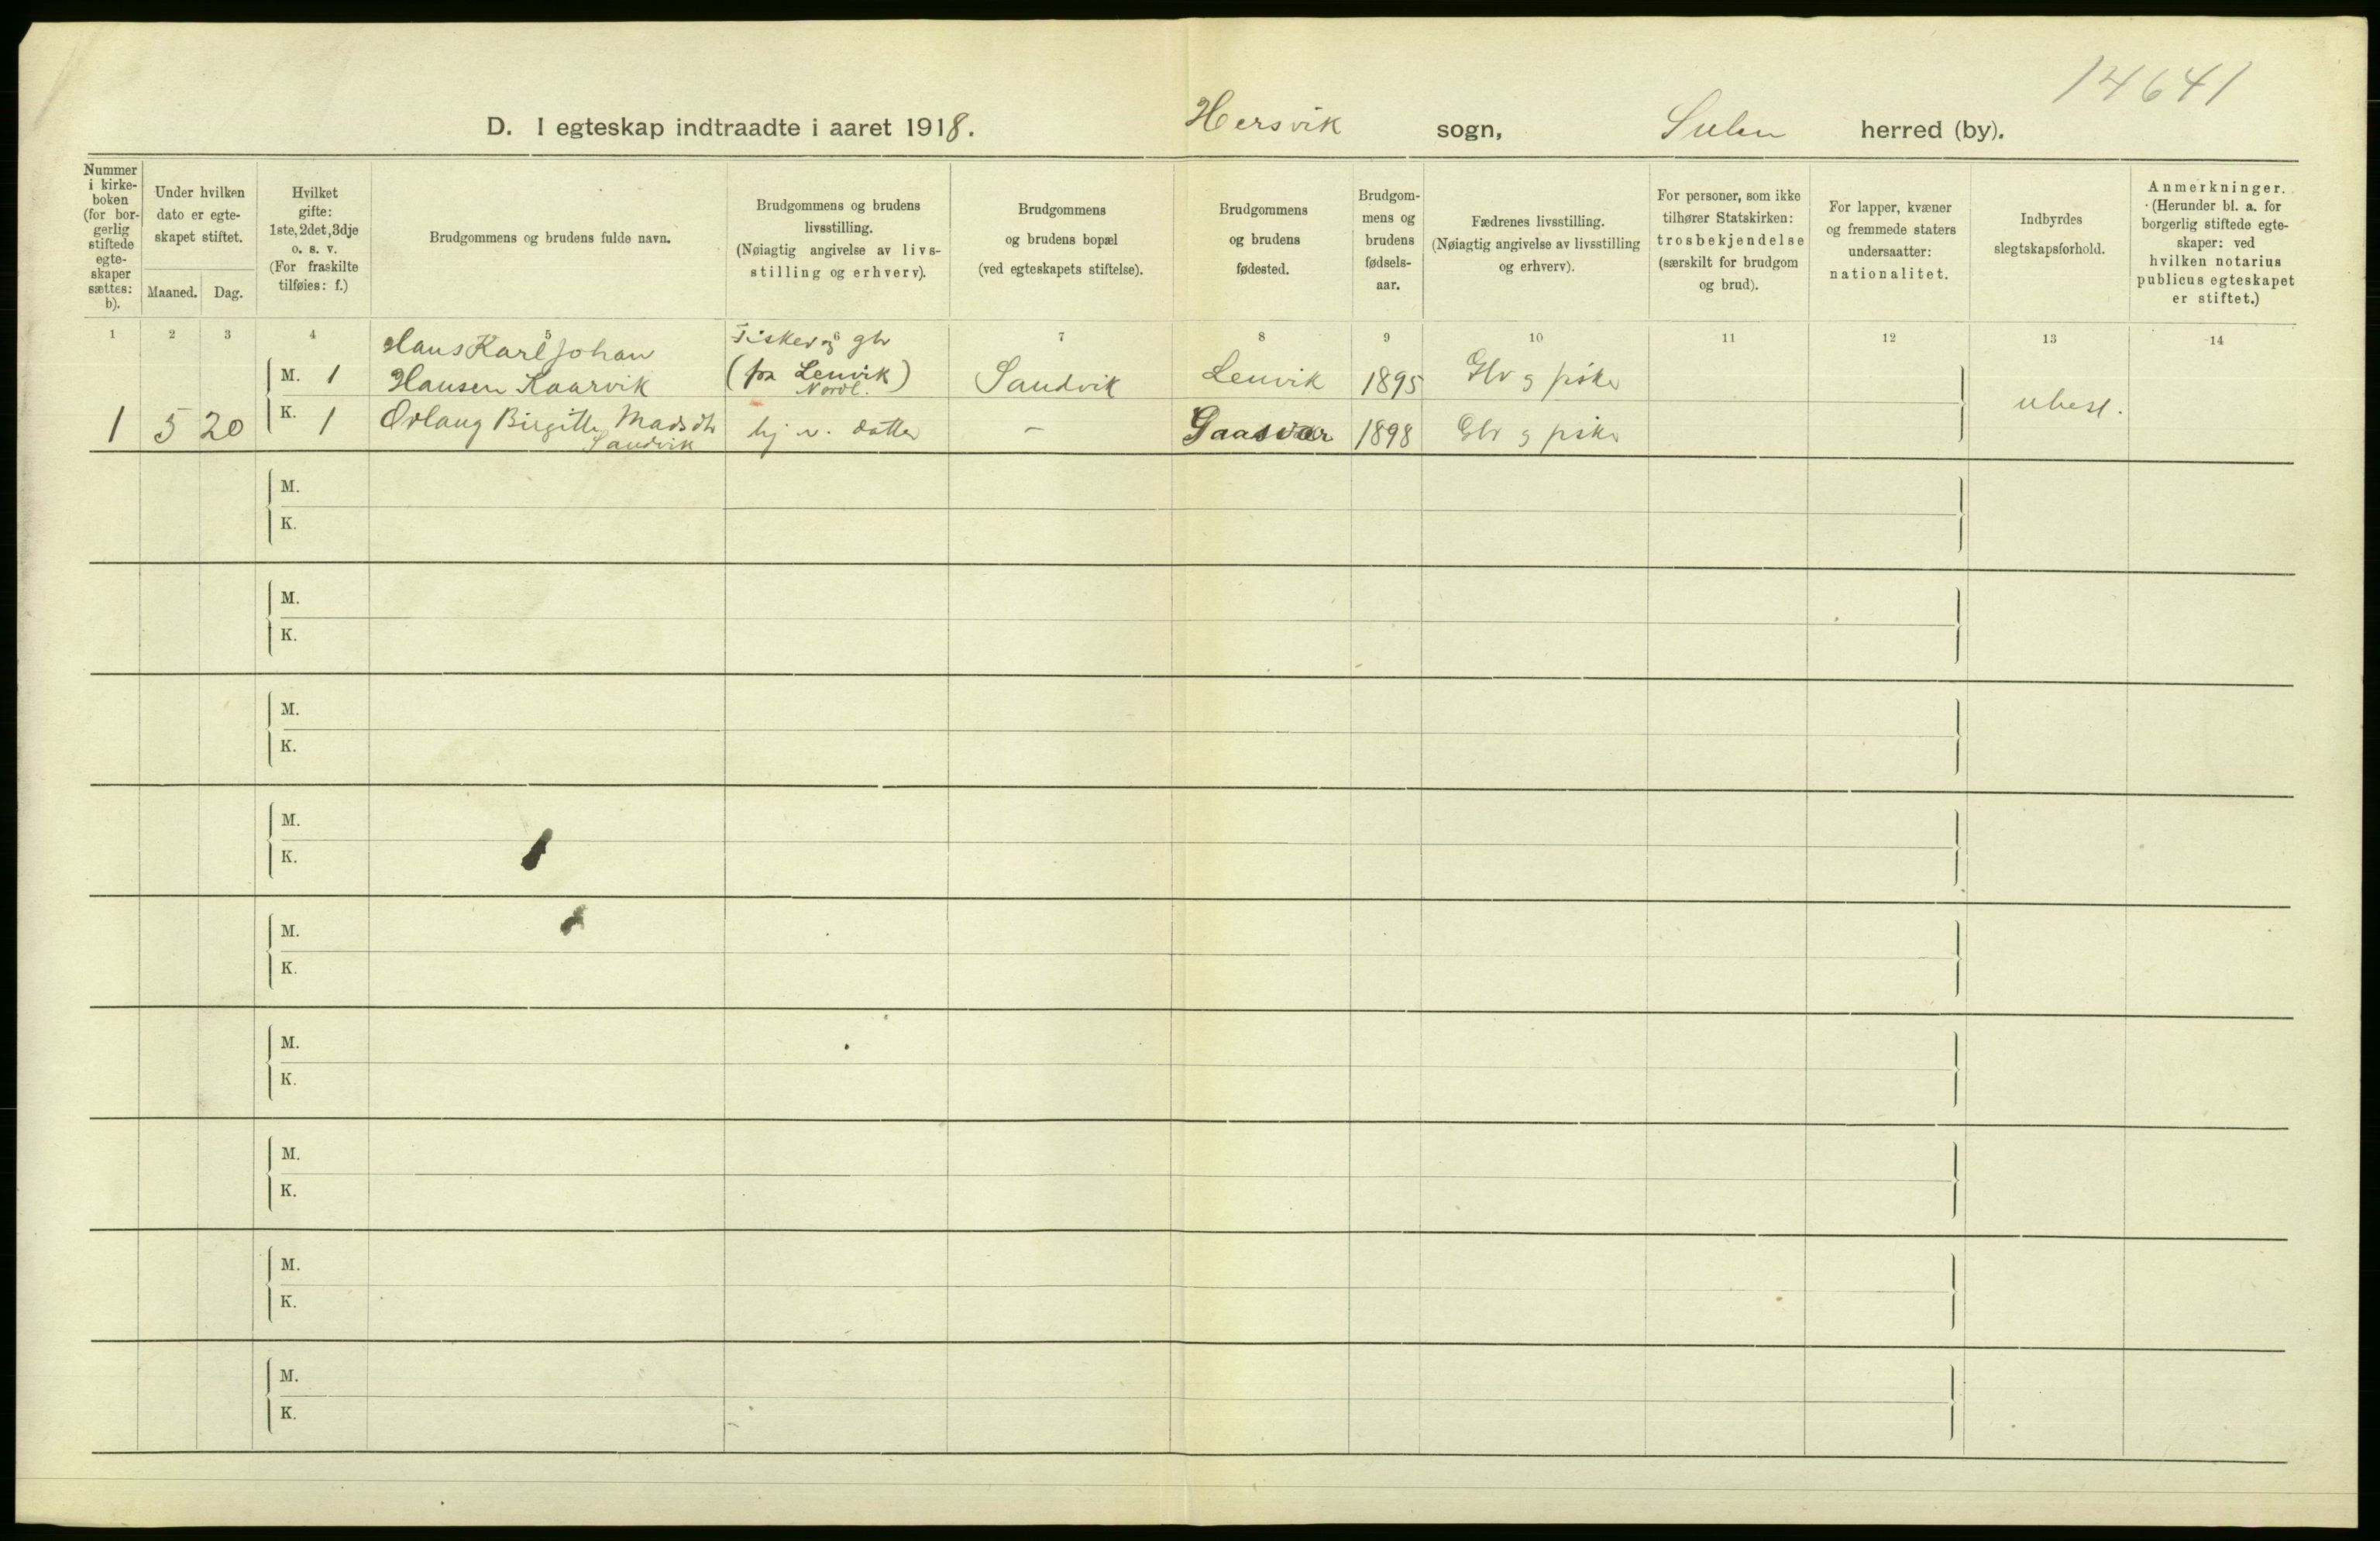 14641
D. I egteskap indtraadte i aaret 1918. Hersvik sogn, Sulen herred (by).
Nummer
i kirke-
boken
(for bor-
gerlig
stiftede
egte-
skaper
sættes:
b).
Under hvilken
dato er egte-
skapet stiftet.
Maaned. Dag.
Hvilket
gifte:
1ste, 2det, 3dje
o. s. v.
(For fraskilte
tilføies: f.)
Brudgommens og brudens fulde navn.
Brudgommens og brudens
livsstilling.
(Nøiagtig angivelse av livs-
stilling og erhverv).
Brudgommens
og brudens bopæl
(ved egteskapets stiftelse).
Brudgommens
og brudens
fødested.
Brudgom-
mens og
brudens
fødsels-
aar.
Fædrenes livsstilling.
(Nøiagtig angivelse av livsstilling
og erhverv).
For personer, som ikke
tilhører Statskirken:
trosbekjendelse
(særskilt for brudgom
og brud).
For lapper, kvæner
og fremmede staters
undersaatter:
nationalitet.
Indbyrdes
slegtskapsforhold.
Anmerkninger.
(Herunder bl. a. for
borgerlig stiftede egte-
skaper: ved
hvilken notarius
publicus egteskapet
er stiftet.)
1 2 3 4 5 6 7 8 9 10 11 12 13 14
Hans Karl Johan Fisker og gbr
M. 1 Hansen Kaarvik (fra Lenvik) Sandvik Lenvik 1895 Gbr og fisker
Nordl.
ubesl.
1 5 20 K. 1 Ovlaug Birgitte Madsdtr hj v. datter – Gaasvær 1898 Gbr og fisker
Sandvik
M.
K.
M.
K.
M.
K.
M.
K.
M.
K.
M.
K.
M.
K.
M.
K.
M.
K.